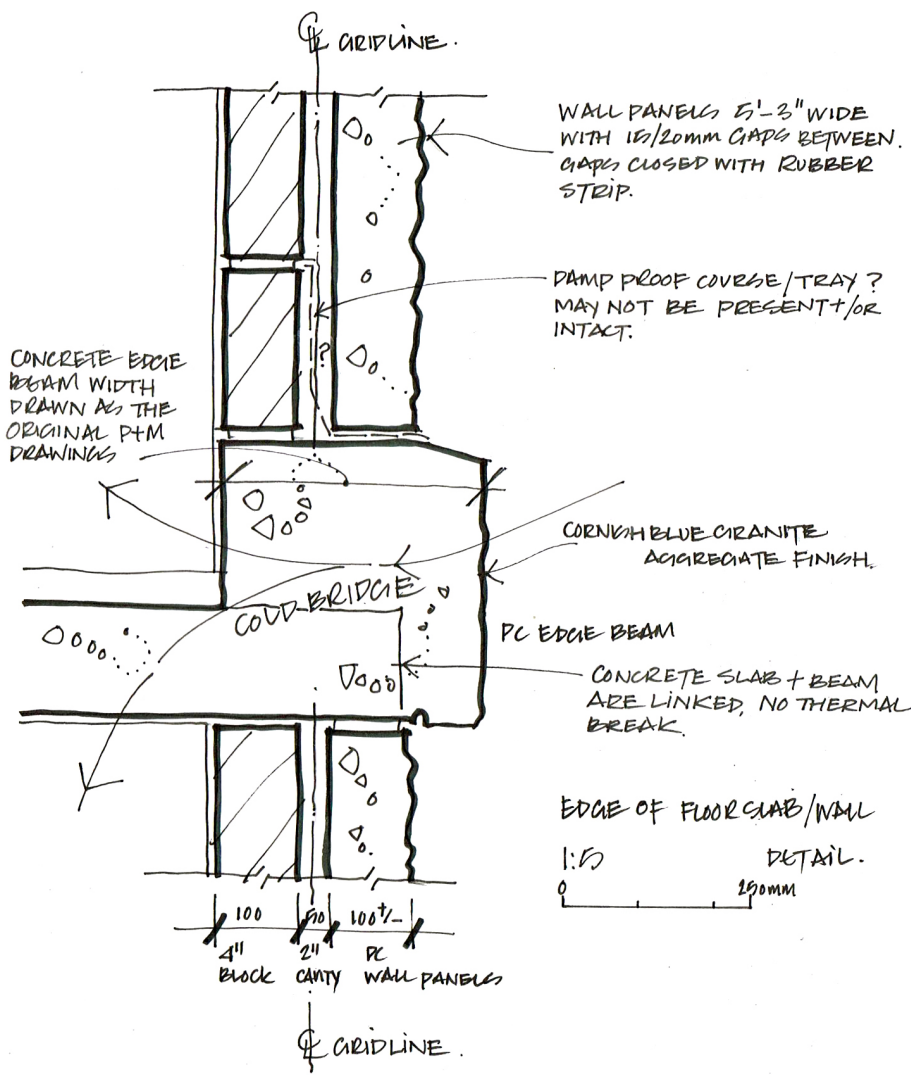 ℄ GRIDLINE.
WALL PANELS 5'-3" WIDE
WITH 15/20mm GAPS BETWEEN.
GAPS CLOSED WITH RUBBER
STRIP.
DAMP PROOF COURSE/TRAY ?
MAY NOT BE PRESENT+/OR
INTACT.
?
CONCRETE EDGE
BEAM WIDTH
DRAWN AS THE
ORIGINAL P+M
DRAWINGS
CORNISH BLUE GRANITE
AGGREGATE FINISH.
COLD BRIDGE
PC EDGE BEAM
CONCRETE SLAB + BEAM
ARE LINKED, NO THERMAL
BREAK.
EDGE OF FLOOR SLAB/WALL
1:5 DETAIL.
0 250mm
100 50 100+/-
4" 2" PC
BLOCK CAVITY WALL PANELS
℄ GRIDLINE.